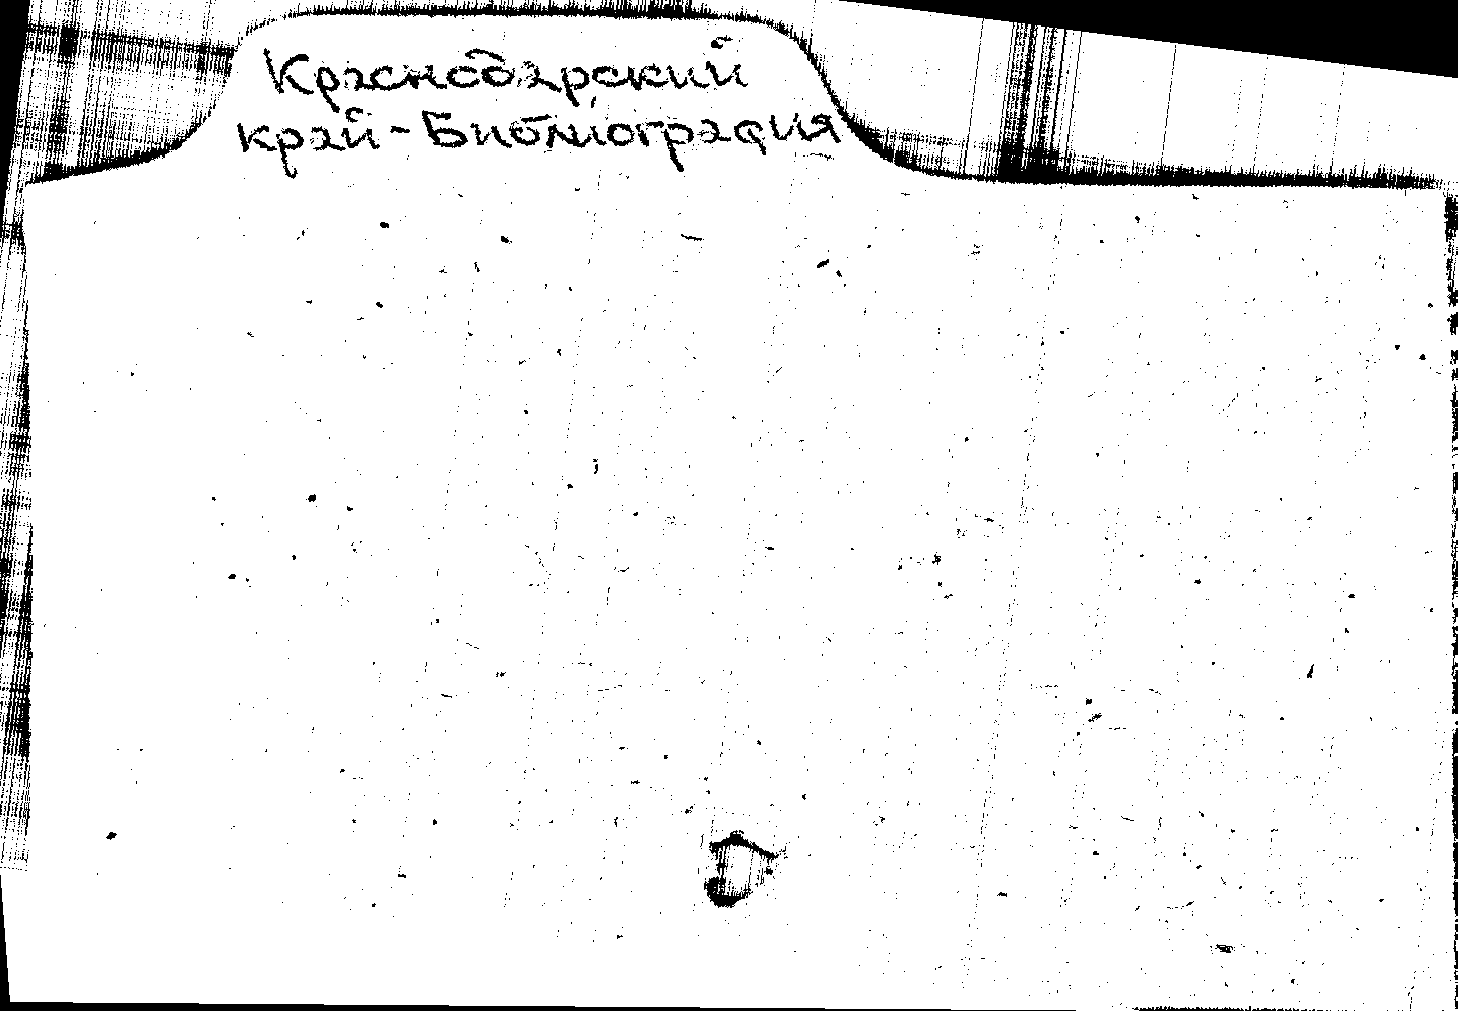 Краснодарский
край - Библиография